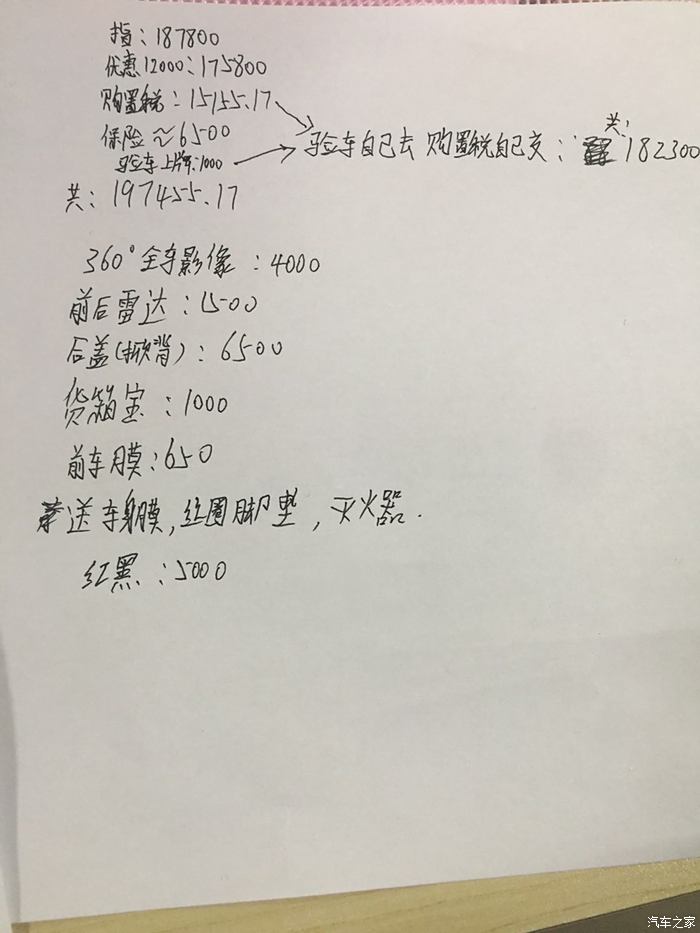 指：187800
优惠12000：175800
购置税：15155.17
保险≈6500
验车上牌：1000
验车自己去 购置税自己交：共：182300
共：197455.17
360°全车影像：4000
前后雷达：1500
后盖(掀背)：6500
货箱宝：1000
前车膜：650
送车身膜，丝圈脚垫，灭火器.
红黑：5000
汽车之家